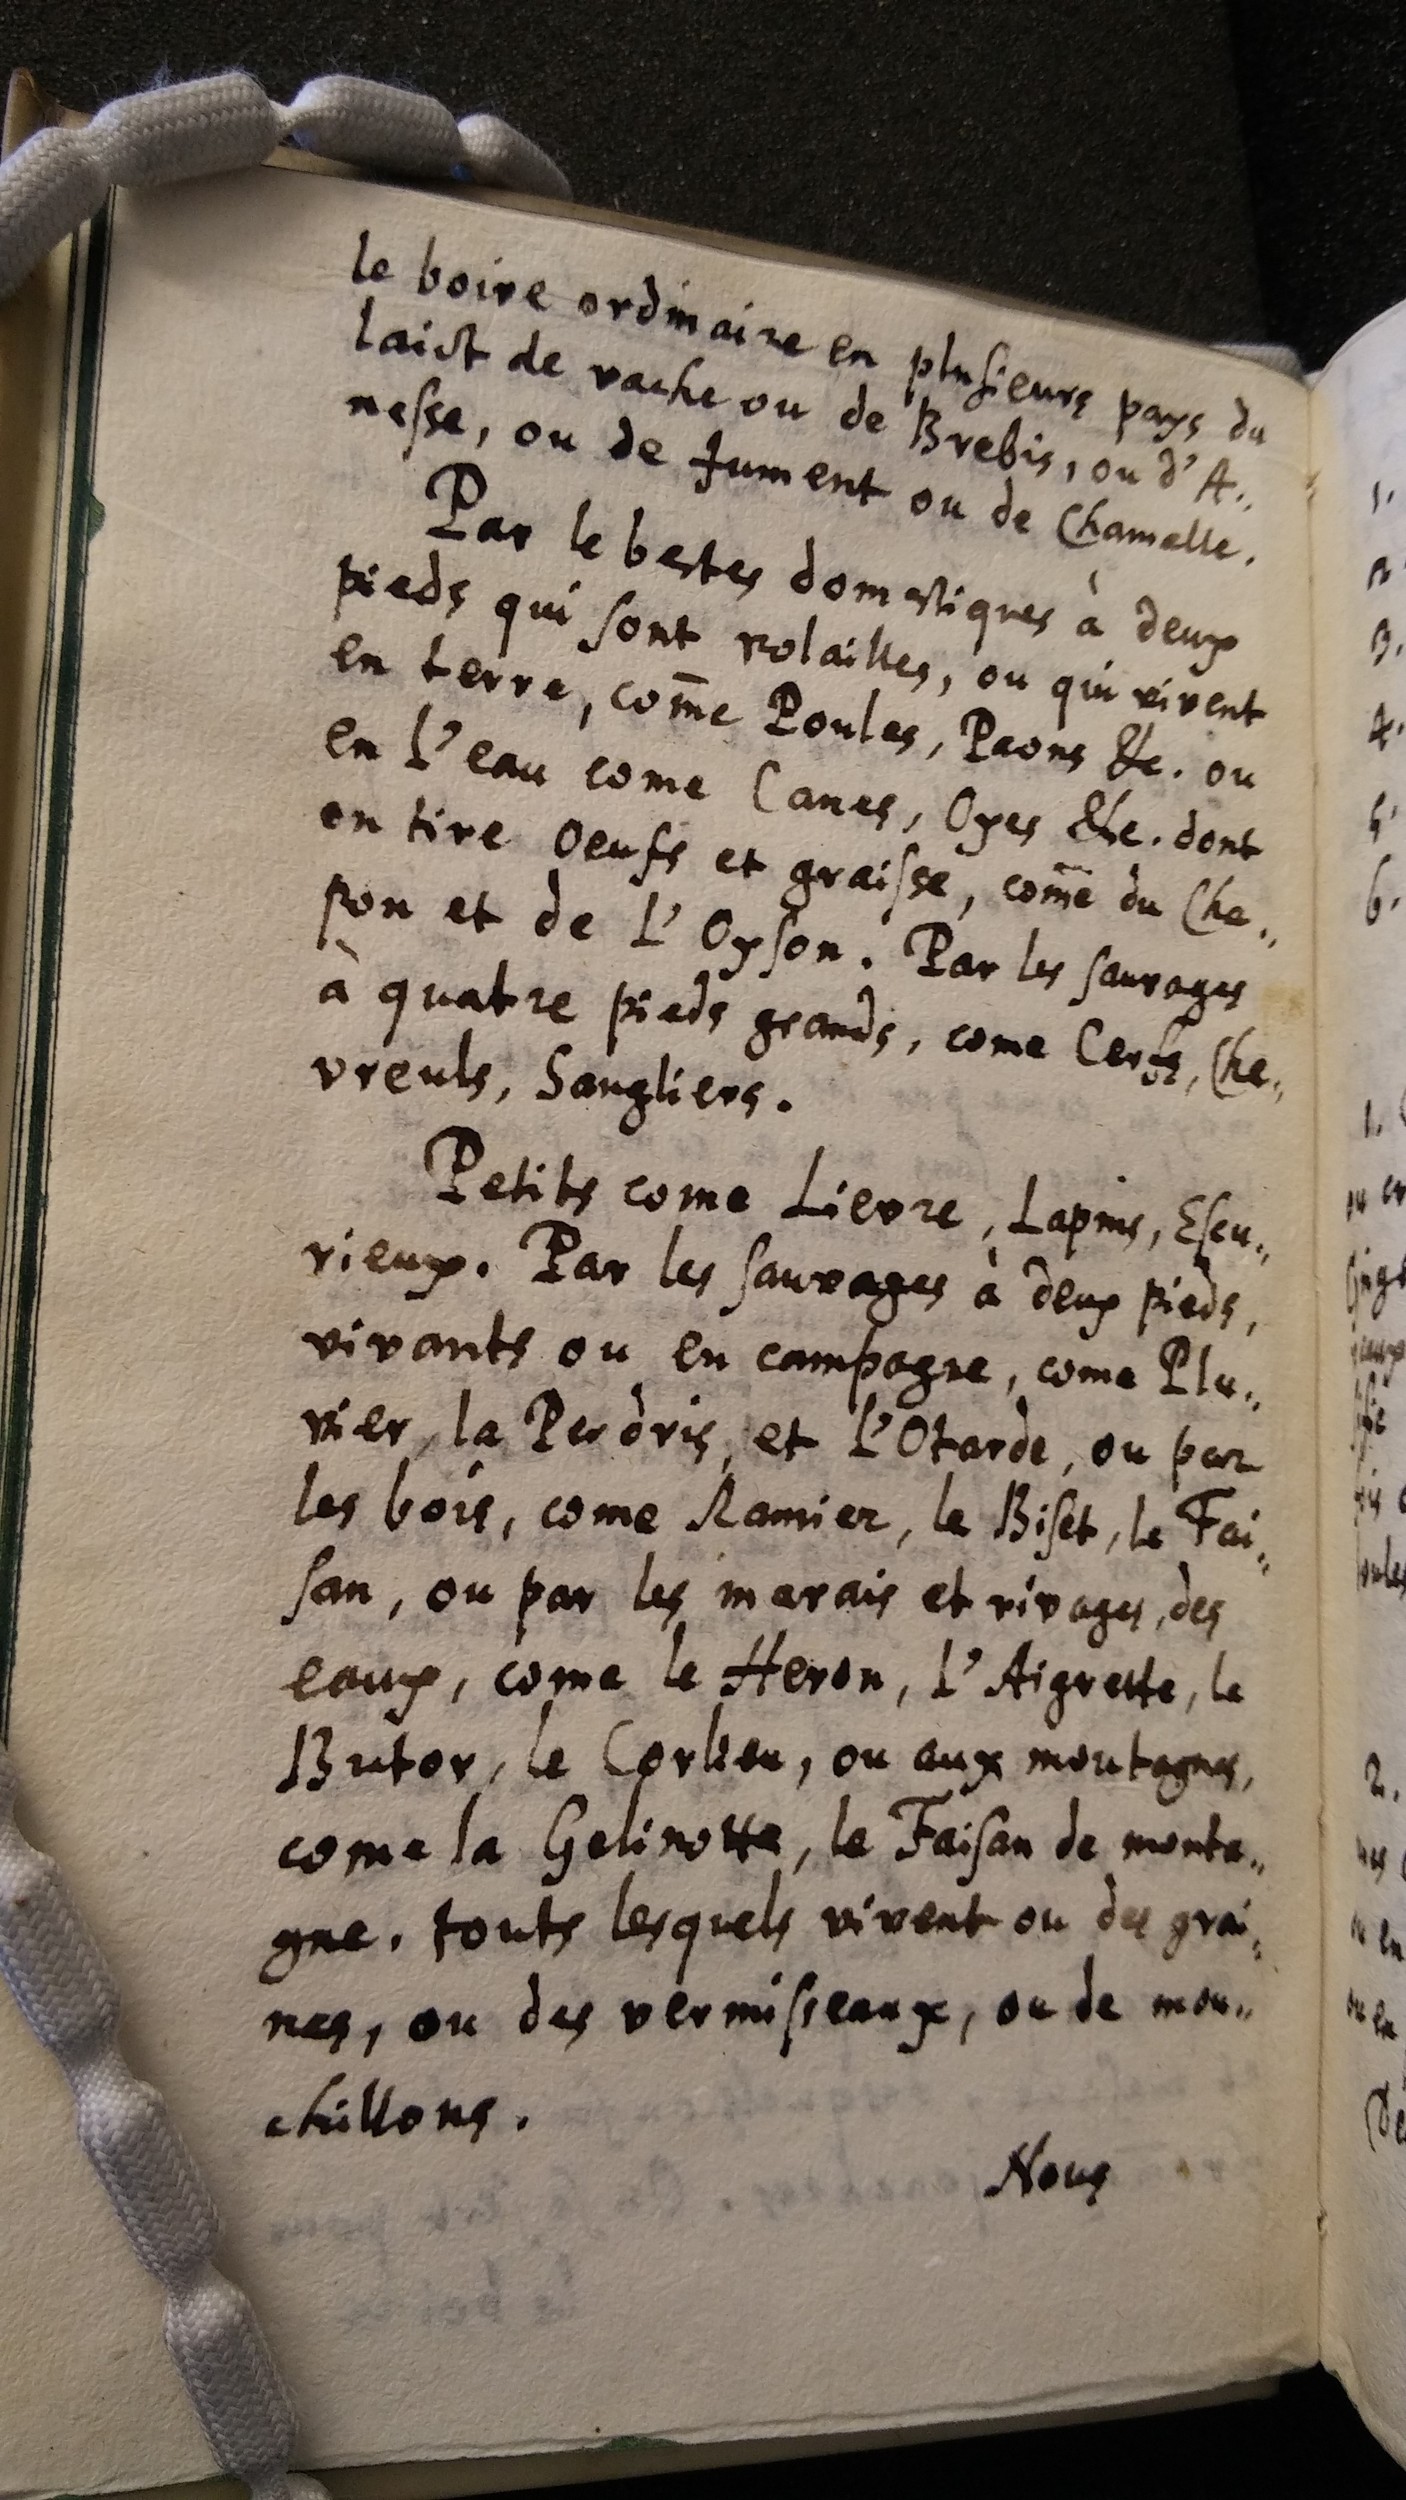 le boire ordinaire en plusieurs pays du
laict de vache ou de Brebis, ou d'A„
nesse, ou de Jument ou de Chamelle.
Par le bestes domestiques à deux
pieds qui sont volailles, ou qui vivent
en terre, com̄e Poules, Paons &c. ou
en l'eau come Canes, Oyes &c. dont
on tire Oeufs et graisse, com̄e du Cha„
pon et de l'Oyson. Par les sauvages
à quatre pieds grands, come Cerfs, Che„
vreuls, Sangliers.
Petits come Lievre, Lapins, Escu„
rieux. Par les sauvages à deux pieds,
vivants ou en campagne, come Plu„
vier, la Perdris, et l'Otarde, ou par
les bois, come Ramier, le Biset, le Fai„
san, ou par les marais et rivages, des
eaux, come le Heron, l'Aigrette, le
Butor, le Corlieu, ou aux montagnes,
come la Gelinotte, le Faisan de monta„
gne. touts lesquels vivent ou des grai„
nes, ou des vermisseaux, ou de mou„
chillons.
Nous
1.
2.
3.
4.
5.
6.
1.
2.